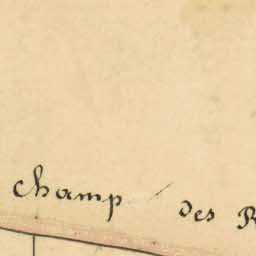 champ des R